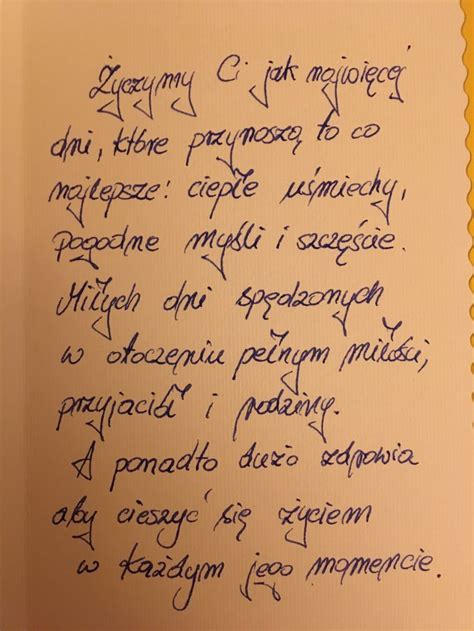 Życzymy Ci jak najwięcej
dni, które przynoszą to co
najlepsze: ciepłe uśmiechy,
pogodne myśli i szczęście.
Miłych dni spędzonych
w otoczeniu pełnym miłości,
przyjaciół i rodziny.
A ponadto dużo zdrowia
aby cieszyć się życiem
w każdym jego momencie.